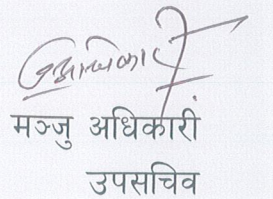 मञ्जु अधिकारी
उपसचिव